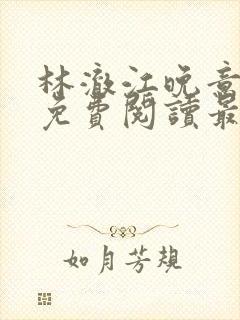 林澈江晚意
免費閱讀最
如月芳規